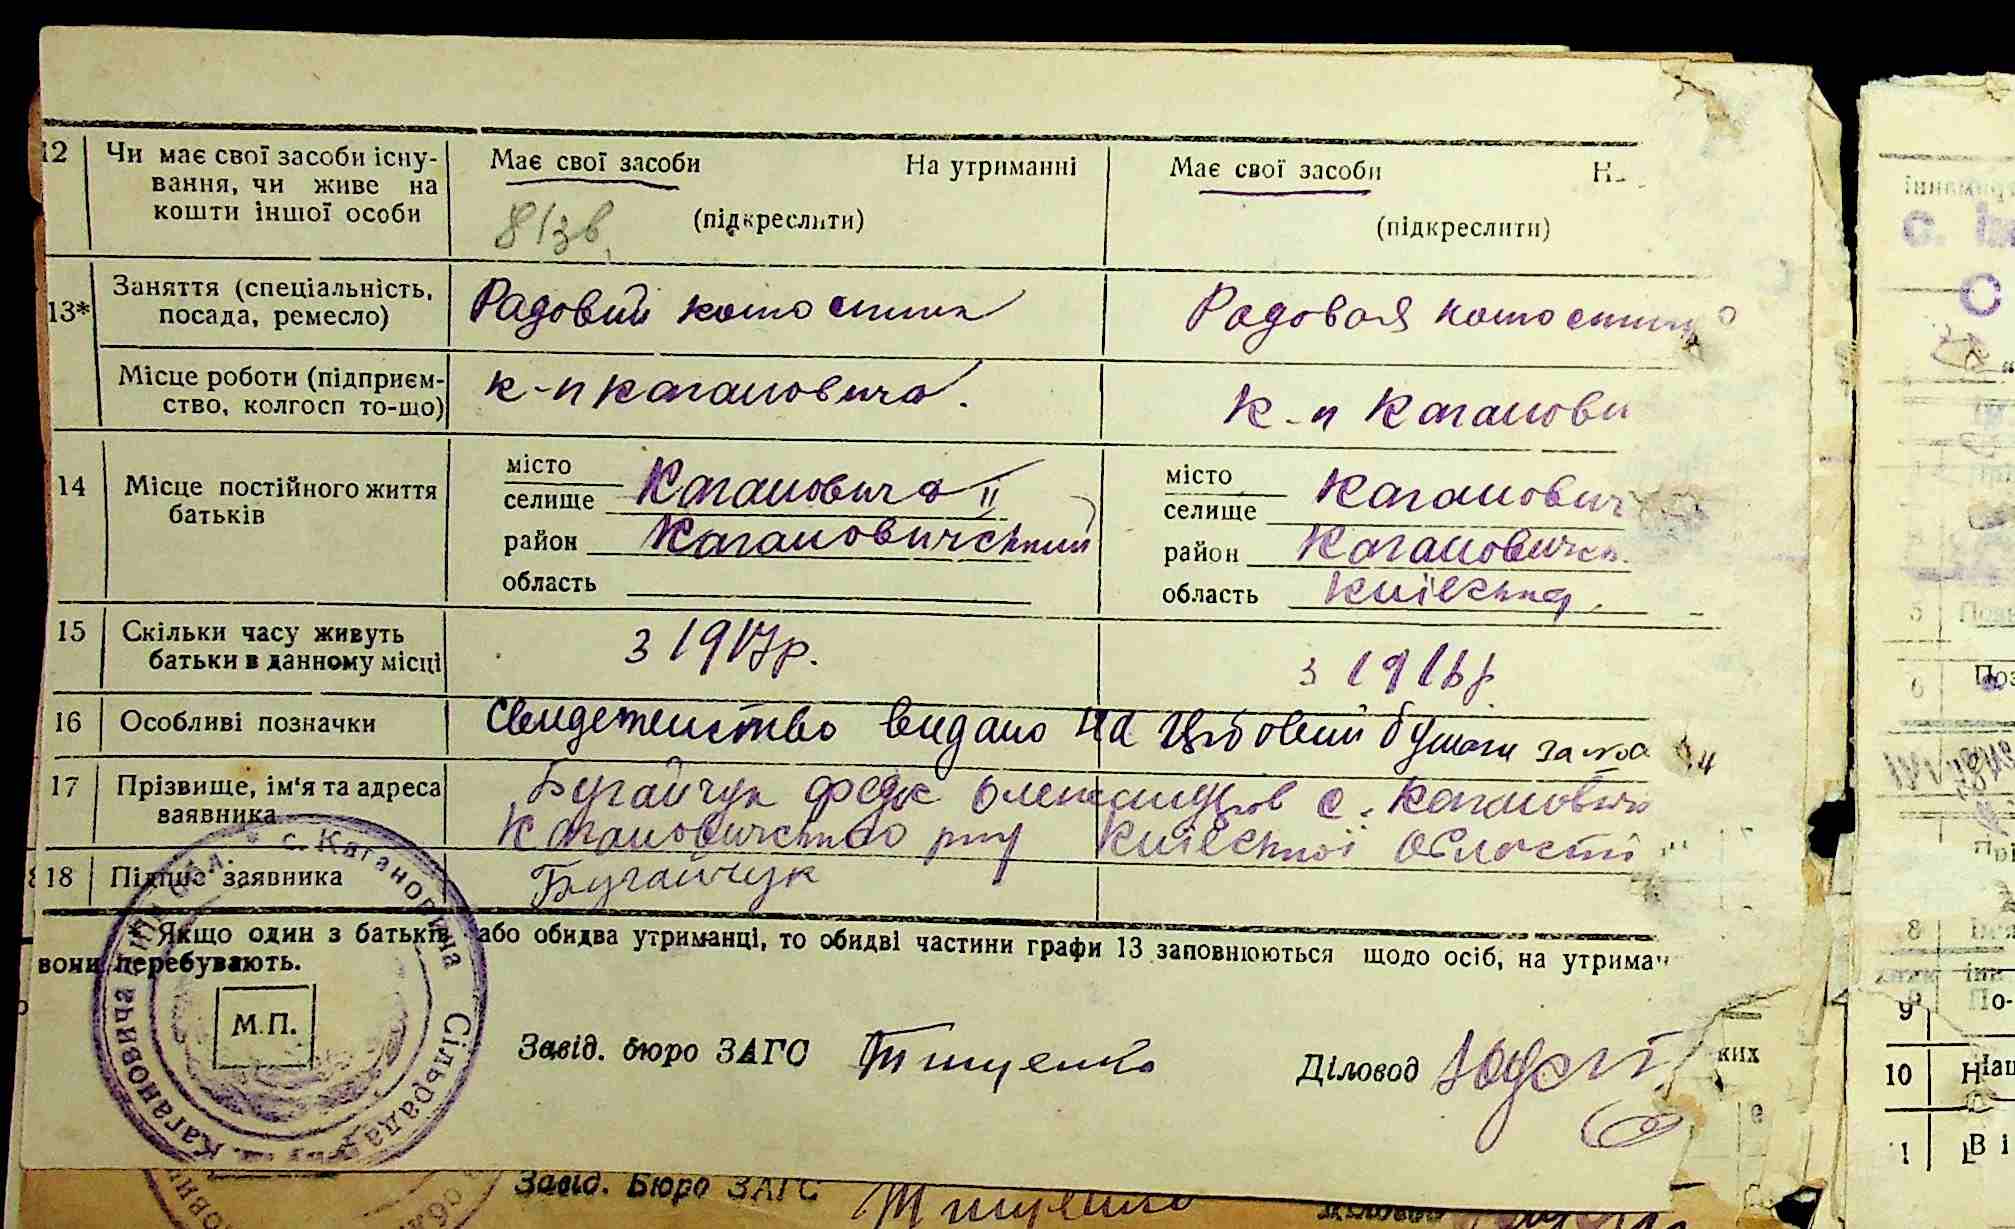 12 Чи має свої засоби існу-
вання, чи живе на
кошти іншої особи
Має свої засоби На утриманні
(підкреслити)
Має свої засоби Н
(підкреслити)
13* Заняття (спеціальність,
посада, ремесло)
Радовий
Радовая
Місце роботи (підприєм-
ство, колгосп то-що)
к-п Кагановича.
к-п Каганови
14 Місце постійного життя
батьків
місто
селище Кагановича II
район Кагановичский
область
місто
селище Каганович
район Кагановичск
область Київська
15 Скільки часу живуть
батьки в данному місці
з 1917р.
з 1916р
16 Особливі позначки
Свидетельство видано на бумаги за
17 Прізвище, ім'я та адреса
заявника
Бугайчук с. Кагановича
Кагановичского р-ну Київської області
18 Підпис заявника
Бугайчук
* Якщо один з батьків або обидва утриманці, то обидві частини графи 13 заповнюються щодо осіб, на утриман
вони перебувають.
с. Кагановича Сільрада
М.П.
Завід. бюро ЗАГС Тищенко
Діловод
Завід. Бюро ЗАГС Тищенко
Діловод
ких
5
6 Поз
8
9 По-
10 Нац
1 Ві